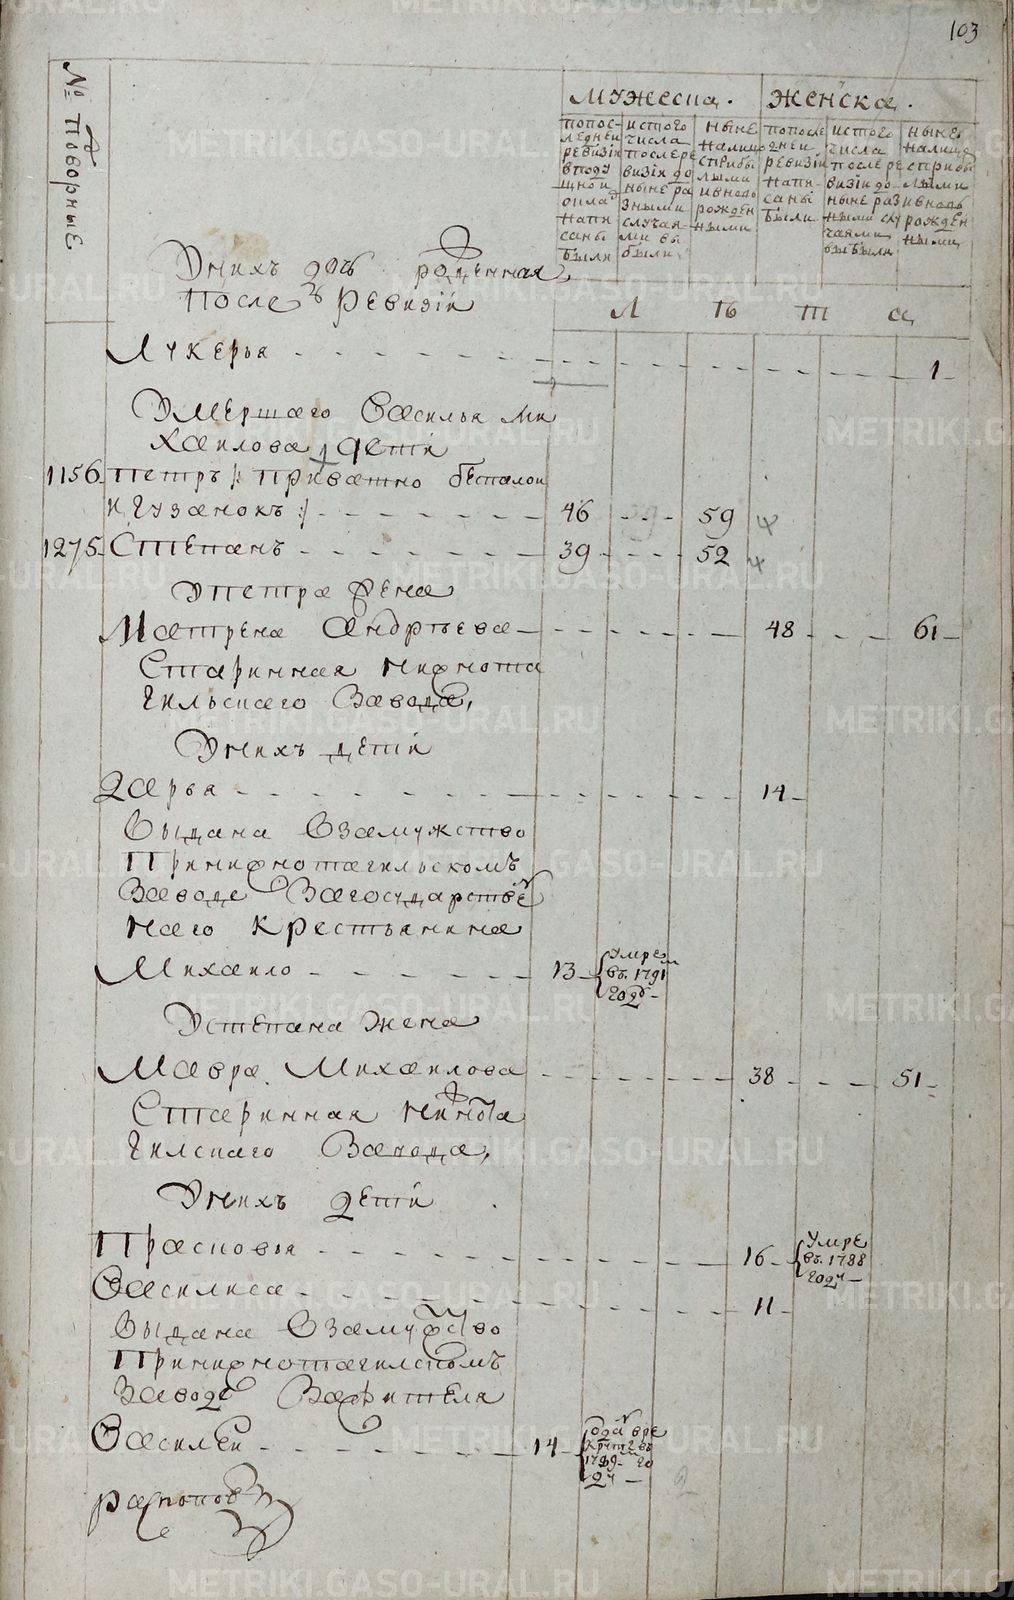 103
№ подворные
мужеска. женска.
попос-
ледней
ревизiи
в поду
шной
оклад
напи
саны
были
истого
числа
после ре
визiи до
ныне ра
зными
случая
ми вы
были
ныне
налицо
с прибы
лыми
и вновь
рожден
ными
по после
дней
ревизiи
напи-
саны
были
истого
числа
после ре
визiи до
ныне раз
ными слу
чаями
выбыли
ныне
налицо
с прибы
лыми
и вновь
рожден
ными
Унихъ дочь рожденная
после ревизiи
Л Ѣ т а
Лукерья 1
Умершаго Василья Ми
хаилова дети
1156 Петръ /: приватно беспалой
и гузанокъ :/ 46 59
1275 Степанъ 39 52
У петра жена
Матрена андреева 48 61
Старинная нижнота
гильскаго Завода,
Унихъ дети
Дарья 14
Выдана Взамужство
Принижнотагильскомъ
Заводе Загосударстве
наго крестьянина
Михаило 13 Умре
въ 1791
году
Устепана жена
Мавра Михаилова 38 51
Старинная нижнота
гилскаго Завода,
Унихъ дети
Прасковья 16 Умре
въ 1788
году
Василиса 11
Выдана Взамужство
Принижнотагилскомъ
Заводе Зажителя
Василеи 14 годъ вре
круты въ
1789 го
ду
распопов
METRIKI.GASO-URAL.RU